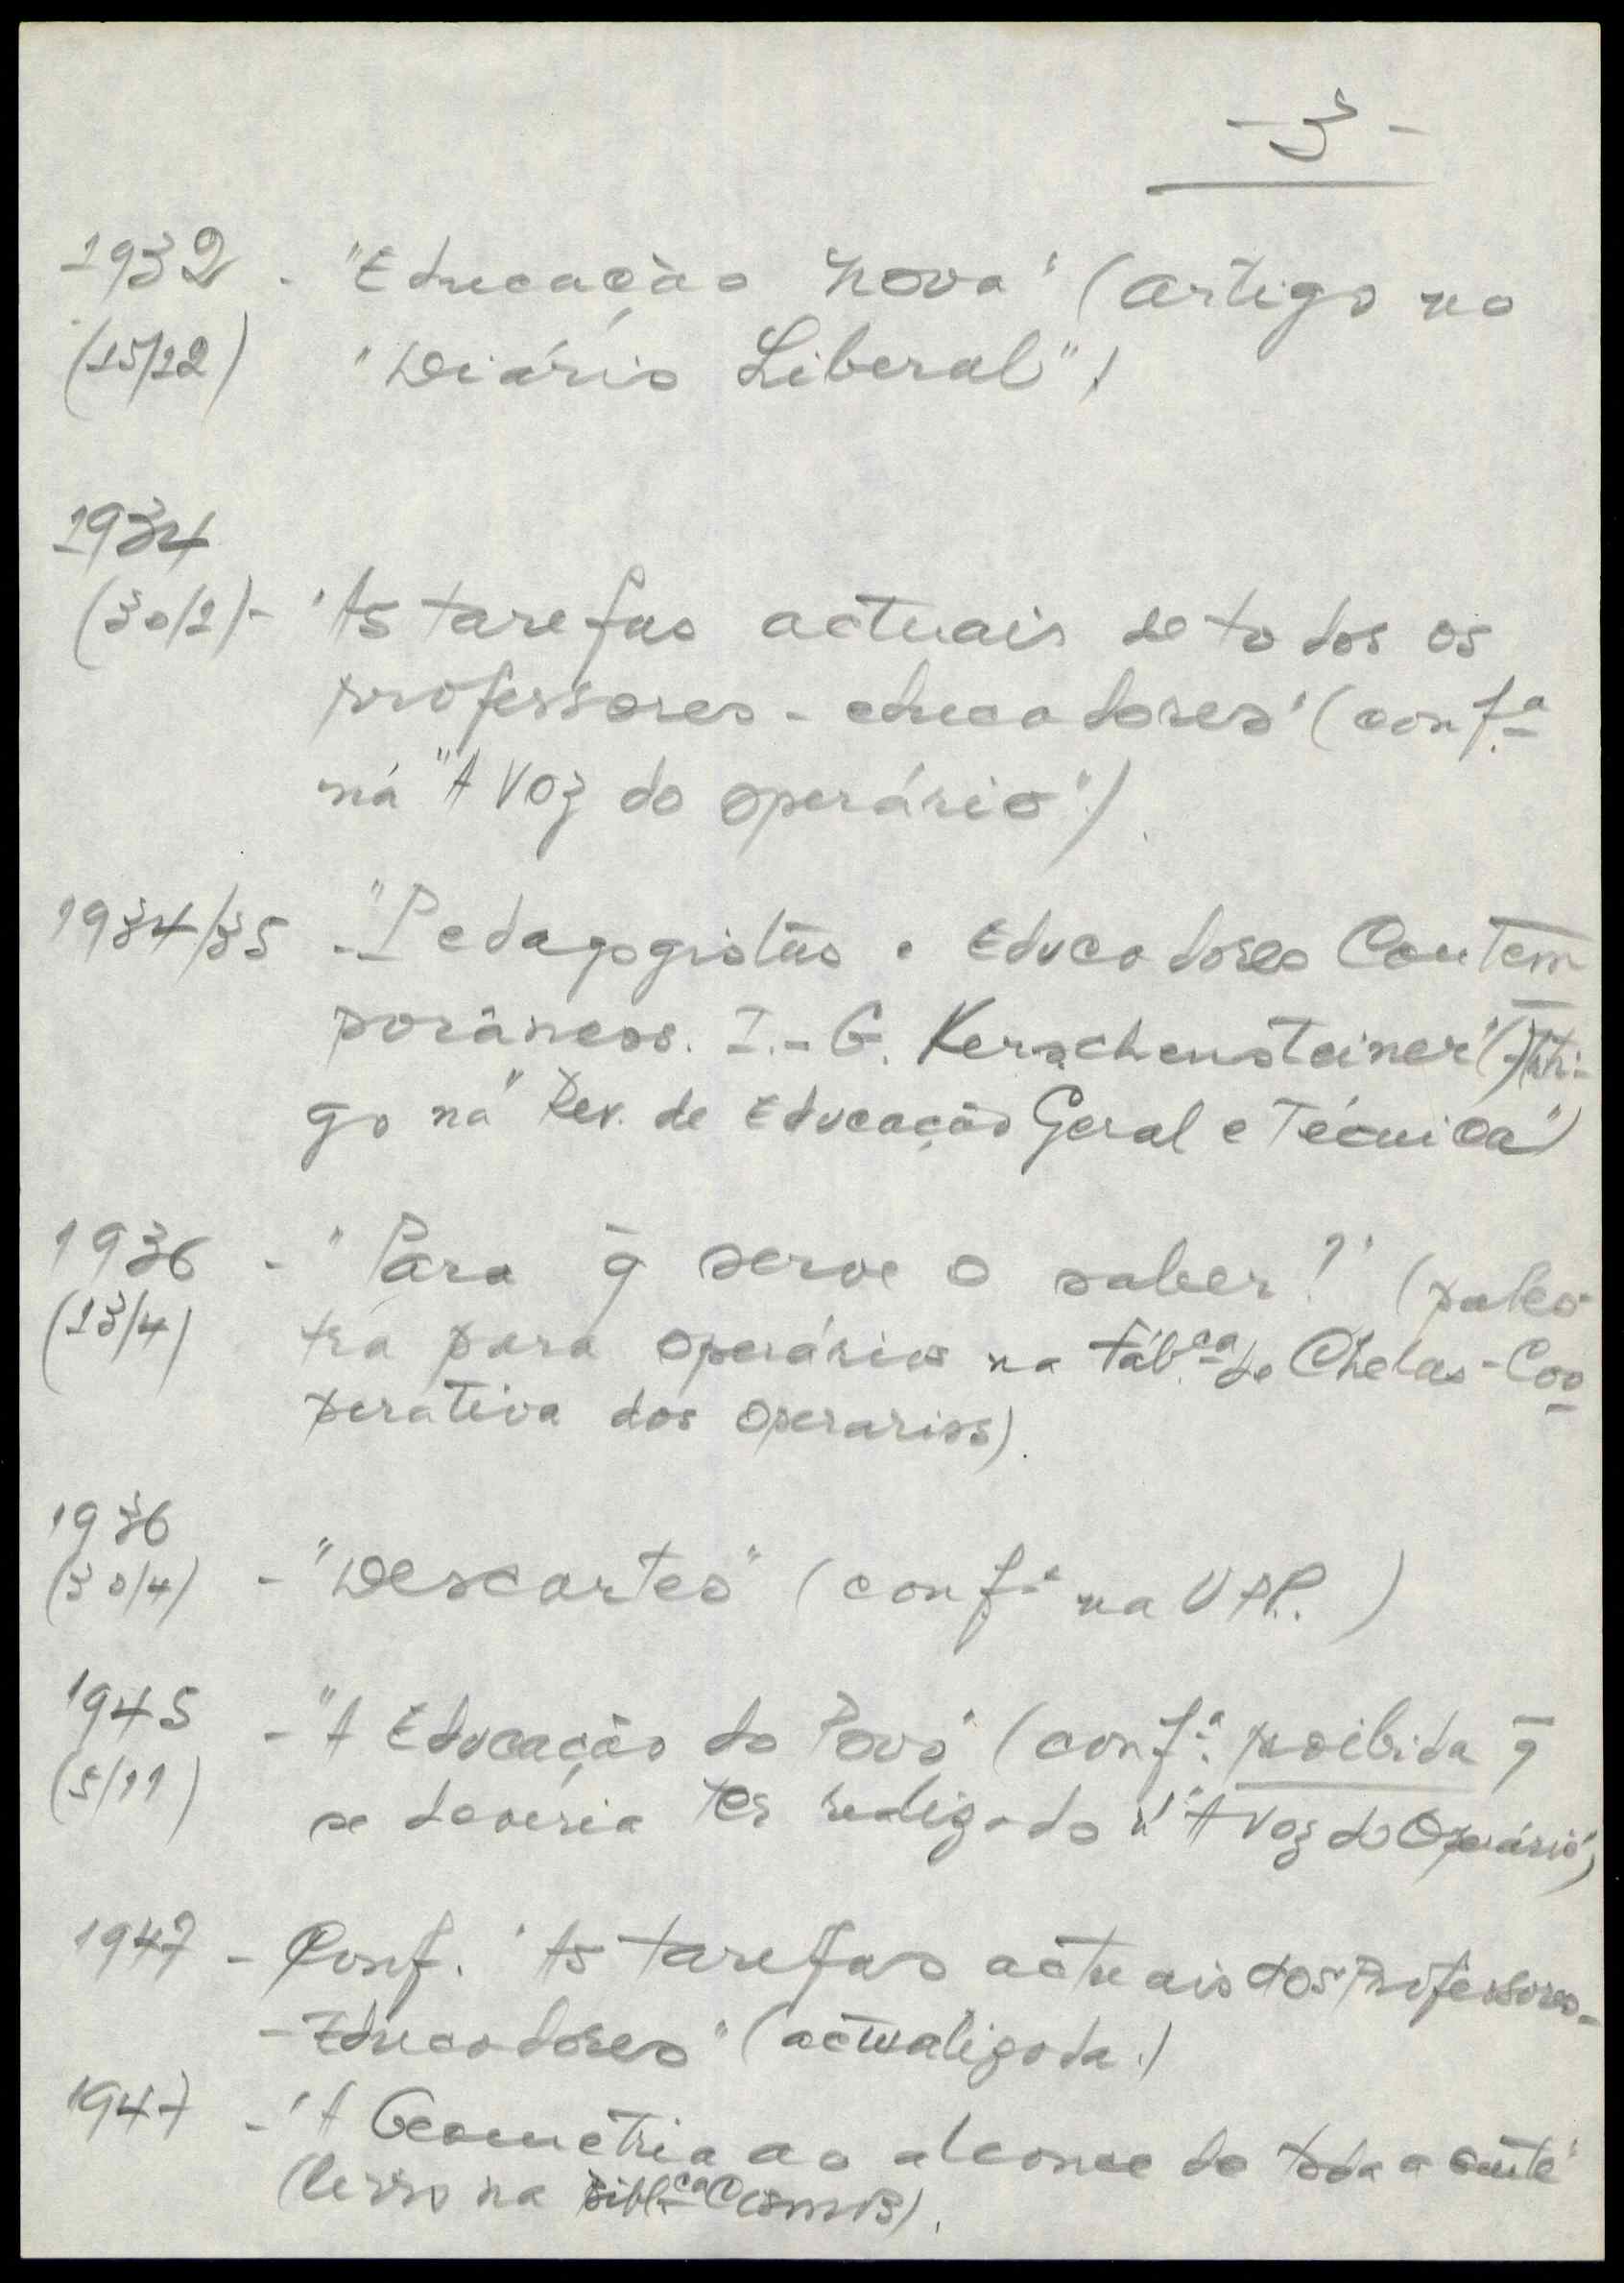 - 3 -
1932 - "Educação Nova" (artigo no
(15/12) "Diário Liberal")
1934
(30/1) - "As tarefas actuais de todos os
professores-educadores" (conf.ª
na "A Voz do operário").
1934/35 - "Pedagogistas e Educadores Contem
porâneos. I.- G. Kerschensteiner" (Arti-
go na "Rev. de Educação Geral e Técnica")
1936 - "Para q̄ serve o saber?" (pales-
(13/4) tra para operários na Fáb.ca de Chelas-Coo
perativa dos operarios).
1936
(30/4) - "Descartes" (conf.ª na U.P.P.)
1945 - "A Educação do Povo" (conf.ª proibida q̄
(5/11) se deveria ter realizado n' "A Voz do Operário")
1947 - Conf. "As tarefas actuais dos Professores-
-Educadores" (actualizada.)
1947 - "A Geometria ao alcance de toda a gente"
(livro na Bibl.ca Cosmos).